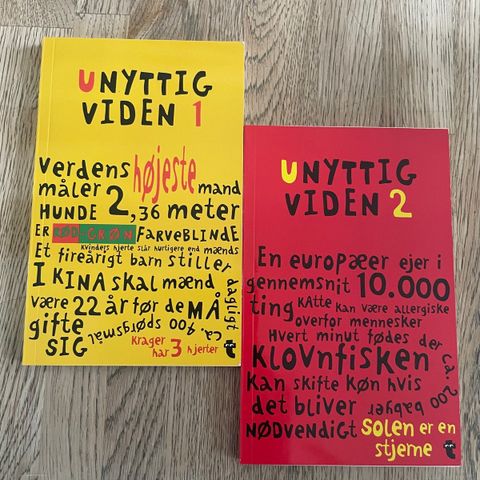 UNYTTIG
VIDEN 1
Verdens højeste mand
måler 2,36 meter
HUNDE
ER RØD-GRØN FARVEBLINDE
Kvinders hjerte slår hurtigere end mænds
Et fireårigt barn stiller
ca. 400 spørgsmål dagligt
I KINA SKAL mænd
være 22 år før de MÅ
gifte
SIG
Krager
har 3 hjerter
UNYTTIG
VIDEN 2
En europæer ejer i
gennemsnit 10.000
ting
KAtte kan være allergiske
overfor mennesker
Hvert minut fødes der ca. 200 babyer
KLOVNfISKEN
kan skifte KØN hvis
det bliver
NØDVENDIGT
SOLEN er en
stjerne